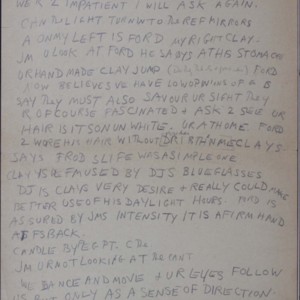 WE R 2 IMPATIENT I WILL ASK AGAIN.
CAN DJ LIGHT TURN TO THE REF MIRRORS
A ON MY LEFT IS FORD MY RIGHT CLAY.
JM U LOOK AT FORD HE SA DYS AT HIS STOMACH
OR HAND MADE CLAY JUMP FORD
NOW BELIEVES WE HAVE
SAY THEY MUST ALSO SAVOUR UR SIGHT THEY
R OF COURSE FASCINATED + ASK 2 SEE UR
HAIR IS IT SO N UN WHITE. UR AT HOME FORD
2 WORE HIS HAIR WITHOUT CLAYS
SAYS FRODS LIFE WAS A SIMPLE ONE
CLAY IS BEFAUSED BY DJS BLUE GLASSES
DJ IS CLAYS VERY DESIRE + REALLY COULD MAKE
BETTER USE OF HIS DAYLIGHT HOURS. MIND IS
ASSURED BY JMS INTENSITY IT IS A FIRM HAND
AT FS BACK.
CANDLE BY
JM U R NOT LOOKING AT
WE DANCE AND MOVE + UR EYES FOLLOW
US BUT ONLY AS A SENSE OF DIRECTION